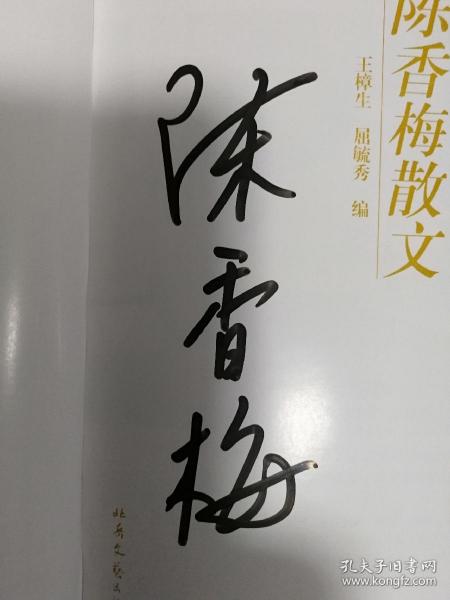 陈香梅散文
王樟生 屈毓秀 编
陈香梅
北岳文艺出
孔夫子旧书网
www.kongfz.com